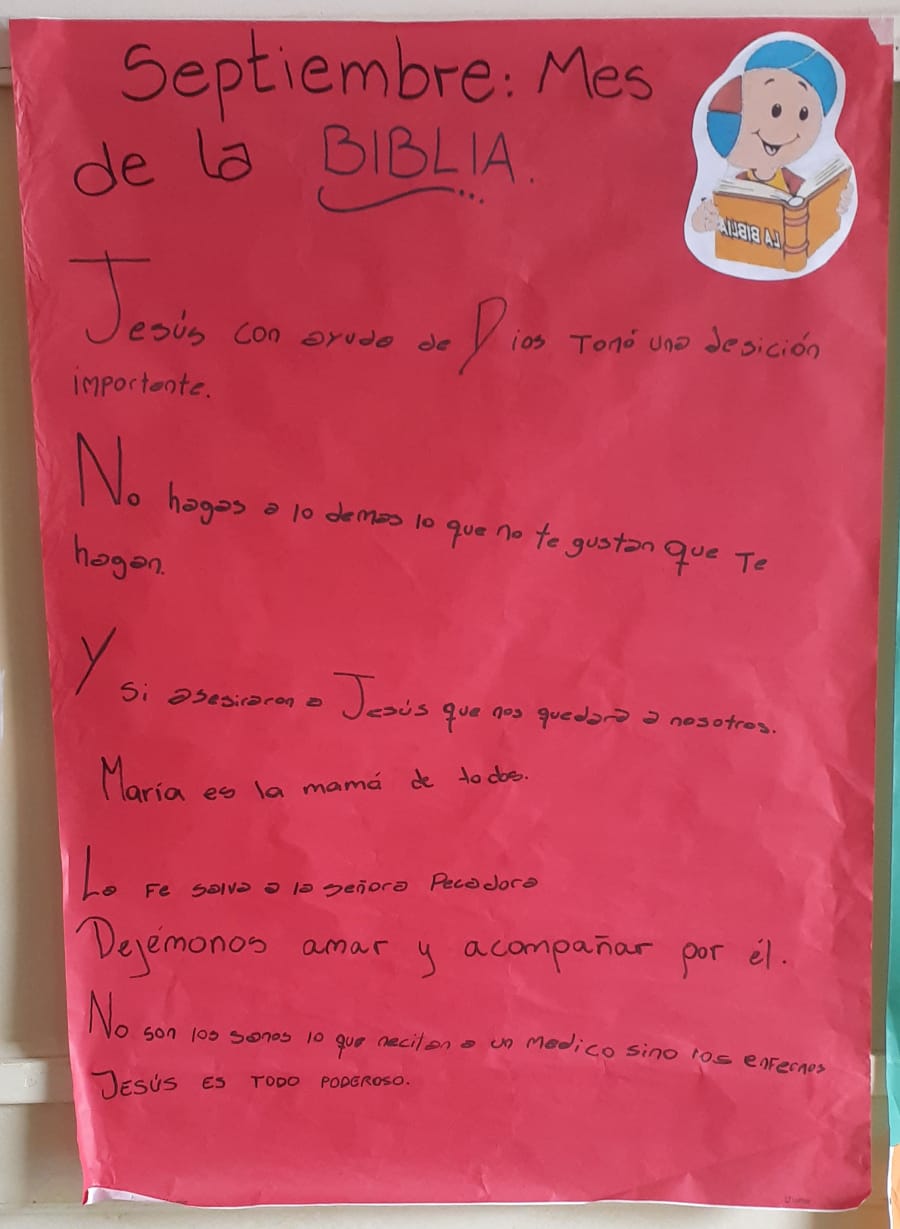 Septiembre: Mes
de la BIBLIA.
LA BIBLIA
Jesús con ayuda de Dios Tomó una desición
importante.
No hagas a lo demas lo que no te gustan que Te
hagan.
Y si asesiraron a Jesús que nos quedara a nosotros.
María es la mamá de todos.
La Fe salva a la señora Pecadora
Dejémonos amar y acompañar por él.
No son los sanos lo que necitan a un Medico sino los enfermos
JESÚS ES TODO PODEROSO.